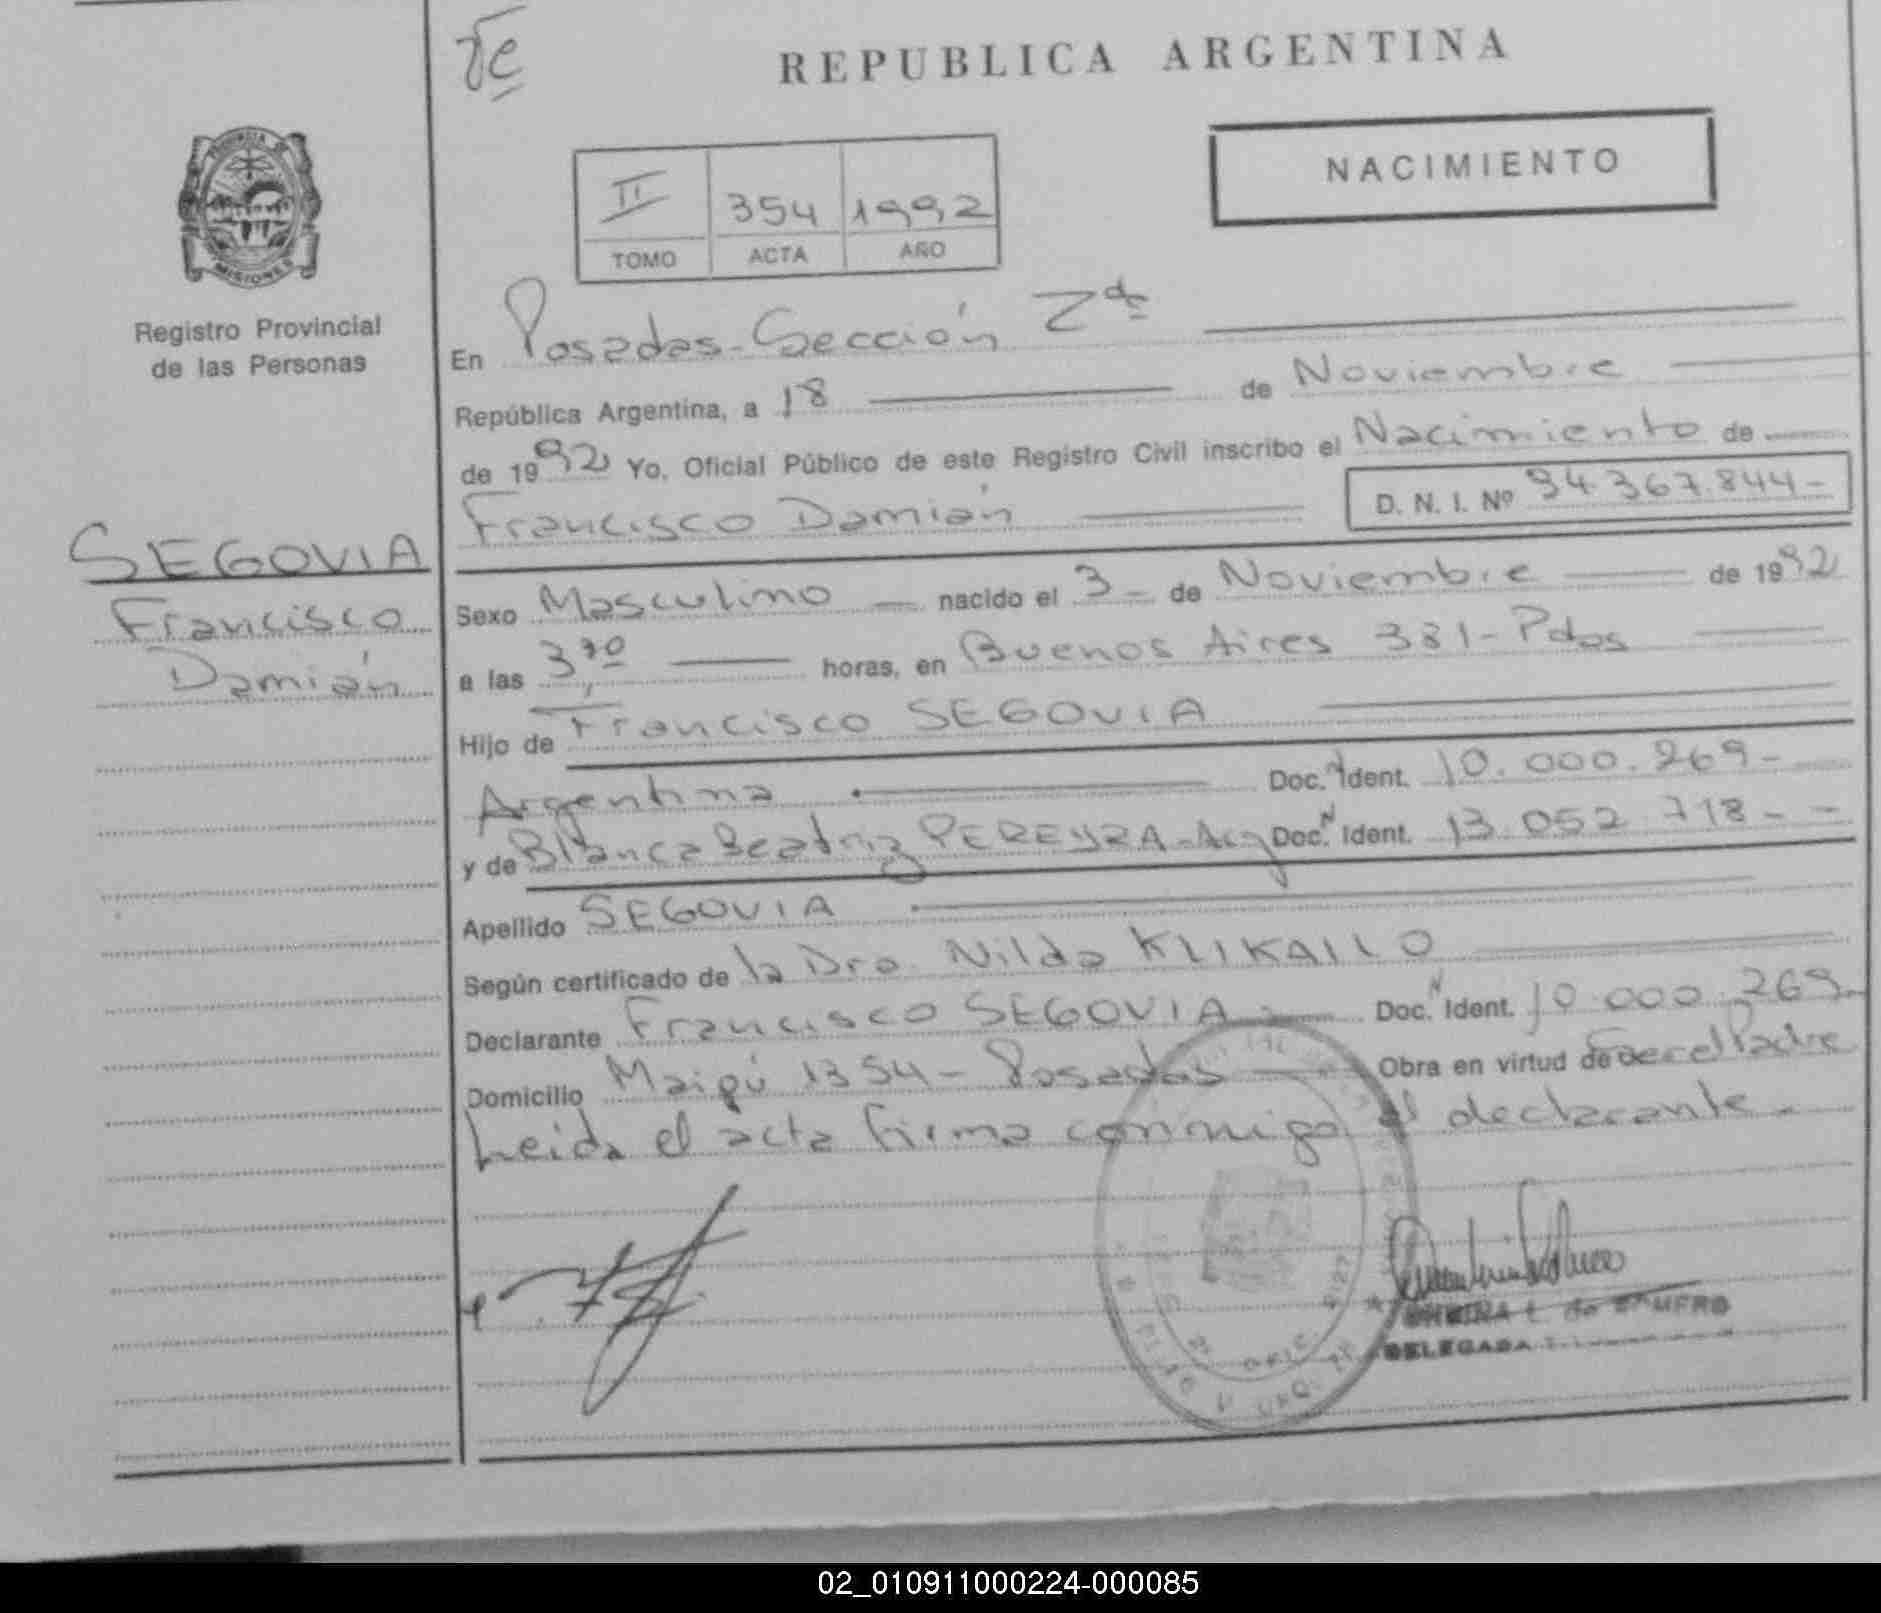 Te
REPUBLICA ARGENTINA
PROVINCIA DE
MISIONES
Registro Provincial
de las Personas
NACIMIENTO
II 354 1992
TOMO ACTA AÑO
En Posadas-Sección 2da
República Argentina, a 18 de Noviembre
de 1992 Yo, Oficial Público de este Registro Civil inscribo el Nacimiento de
Francisco Damián D. N. I. Nº 34.367.844-
SEGOVIA
Francisco
Damián
Sexo Masculino nacido el 3- de Noviembre de 1992
a las 3,30 horas, en Buenos Aires 381-Pdas
Hijo de Francisco SEGOVIA
Argentina Doc. N Ident. 10.000.269-
y de Blanca Beatriz PEREYRA-Arg Doc. N Ident. 13.052.718--
Apellido SEGOVIA
Según certificado de la Dra. Nilda KLIKAILO
Declarante Francisco SEGOVIA - Doc. N Ident. 10.000.269-
Domicilio Maipú 1354- Posadas Obra en virtud de ser el Padre
Leida el acta firma conmigo el declarante.
DELEGADA
02_010911000224-000085